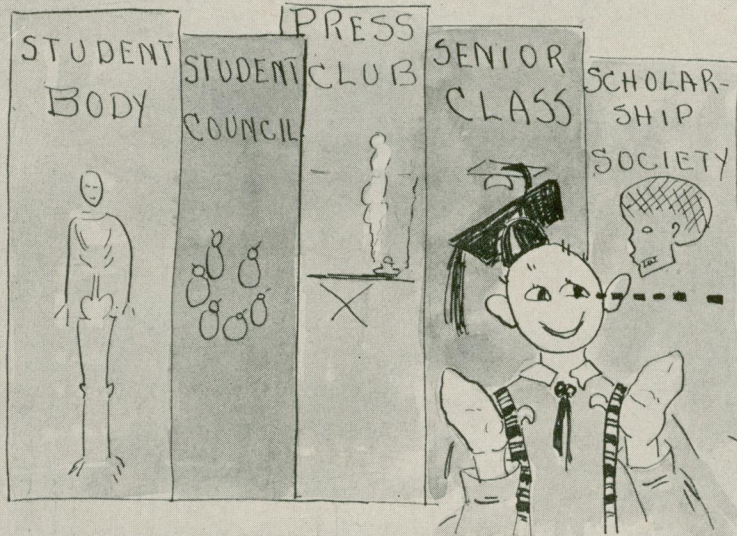 STUDENT
BODY
STUDENT
COUNCIL
PRESS
CLUB
SENIOR
CLASS
SCHOLAR-
SHIP
SOCIETY